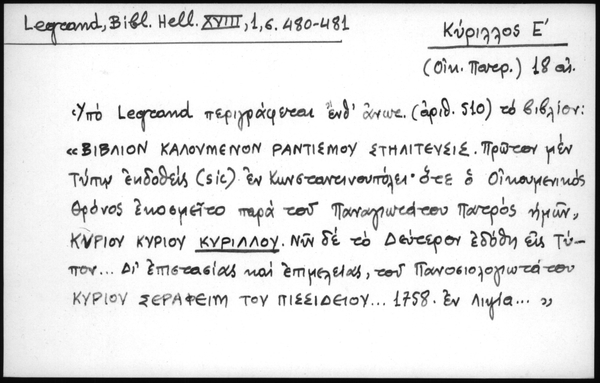 Legrand, Bibl. Hell. XVIII, 1, σ. 480-481
Κύριλλος Ε'
(Οἰκ. Πατρ.) 18 αἰ.
Ὑπό Legrand περιγράφεται ἔνθ' ἀνωτ. (ἀριθ. 510) τό βιβλίον:
« ΒΙΒΛΙΟΝ ΚΑΛΟΥΜΕΝΟΝ ΡΑΝΤΙΣΜΟΥ ΣΤΗΛΙΤΕΥΣΙΣ. Πρῶτον μέν
Τύπῳ ἐκδοθείς (sic) ἐν Κωνσταντινουπόλει· ὅτε ὁ Οἰκουμενικός
Θρόνος ἐκοσμεῖτο παρά τοῦ Παναγιωτάτου Πατρός ἡμῶν,
ΚΥΡΙΟΥ ΚΥΡΙΟΥ ΚΥΡΙΛΛΟΥ. Νῦν δέ τό Δεύτερον ἐδόθη εἰς Τύ-
πον... Δι' ἐπιστασίας καί ἐπιμελείας, τοῦ Πανοσιολογιωτάτου
ΚΥΡΙΟΥ ΣΕΡΑΦΕΙΜ ΤΟΥ ΠΙΣΣΙΔΕΙΟΥ... 1758. ἐν Λιψία... »